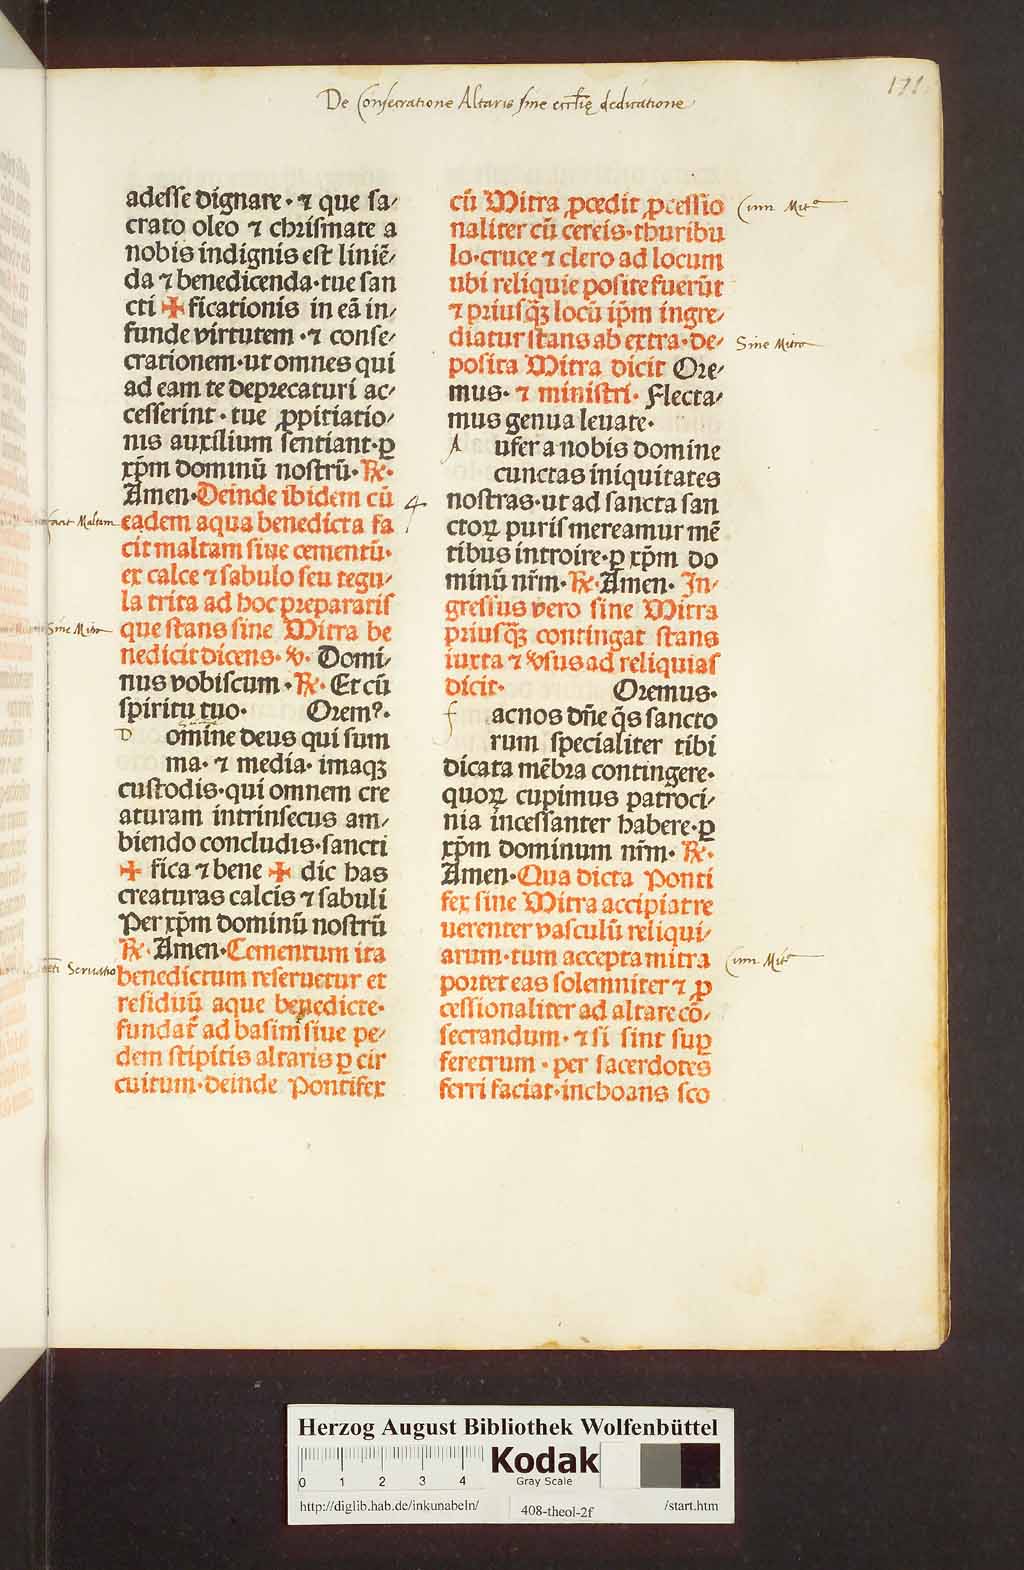 De Consecratione Altaris sine eccl̄ię dedicatione
171
adesse dignare· ⁊ que sa⸗
crato oleo ⁊ chrismate a
nobis indignis est liniē⸗
da ⁊ benedicenda·tue san
cti ✠ ficationis in eā in⸗
funde virtutem·⁊ conse⸗
crationem·ut omnes qui
ad eam te deprecaturi ac⸗
cesserint·tue ꝓpitiatio⸗
nis auxilium sentiant·ꝑ
xp̄m dominū nostrū·℞·
Amen·Deinde ibidem cū
eadem aqua benedicta fa
cit maltam siue cementū·
ex calce ⁊ sabulo seu tegu⸗
la trita ad hoc preparatis
que stans sine Mitra be
nedicit dicens·℣·Domi⸗
nus vobiscum·℞·Et cū
spiritu tuo· Oremꝰ·
D omine deus qui sum
ma·⁊ media·imaqꝫ
custodis·qui omnem cre
aturam intrinsecus am⸗
biendo concludis·sancti
✠ fica ⁊ bene ✠ dic has
creaturas calcis ⁊ sabuli
Per xp̄m dominū nostrū
℞·Amen·Cementum ita
benedictum reseruetur et
residuū aque benedicte·
fundat̄ ad basim siue pe⸗
dem stipitis altaris ꝑ cir
cuitum·deinde Pontifex
facit Maltam
Sine Mitra
Servatio
4
cū Mitra ꝓcedit ꝓcessio
naliter cū cereis·thuribu
lo·cruce ⁊ clero ad locum
ubi reliquie posite fuerūt
⁊ priusqꝫ locū ip̄m ingre⸗
diatur stans ab extra·de⸗
posita Mitra dicit Ore⸗
mus·⁊ ministri·Flecta⸗
mus genua leuate·
A ufer a nobis domine
cunctas iniquitates
nostras·ut ad sancta san
ctoꝝ puris mereamur mē
tibus introire·ꝑ xp̄m do
minū nr̄m·℞·Amen·In⸗
gressus vero sine Mitra
priusqꝫ contingat stans
iuxta ⁊ ꝟsus ad reliquias
dicit· Oremus·
F acnos dn̄e q̄s sancto
rum specialiter tibi
dicata mēbra contingere·
quoꝝ cupimus patroci⸗
nia incessanter habere·ꝑ
xp̄m dominum nr̄m·℞·
Amen·Qua dicta Ponti
fex sine Mitra accipiat re
uerenter vasculū reliqui⸗
arum·tum accepta mitra
portet eas solemniter ⁊ ꝓ
cessionaliter ad altare cō⸗
secrandum·⁊ si sint suꝑ
feretrum·per sacerdotes
ferri faciat·inchoans sco
Cum Mitᵃ
Sine Mitra
Cum Mitᵃ
Herzog August Bibliothek Wolfenbüttel
0 1 2 3 4
Kodak
Gray Scale
http://diglib.hab.de/inkunabeln/
408-theol-2f
/start.htm